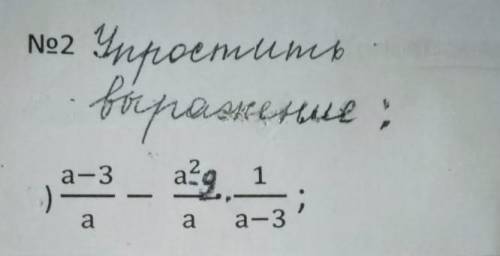 №2 Упростить
выражение:
) (a−3)/a − (a²-9)/a · 1/(a−3);